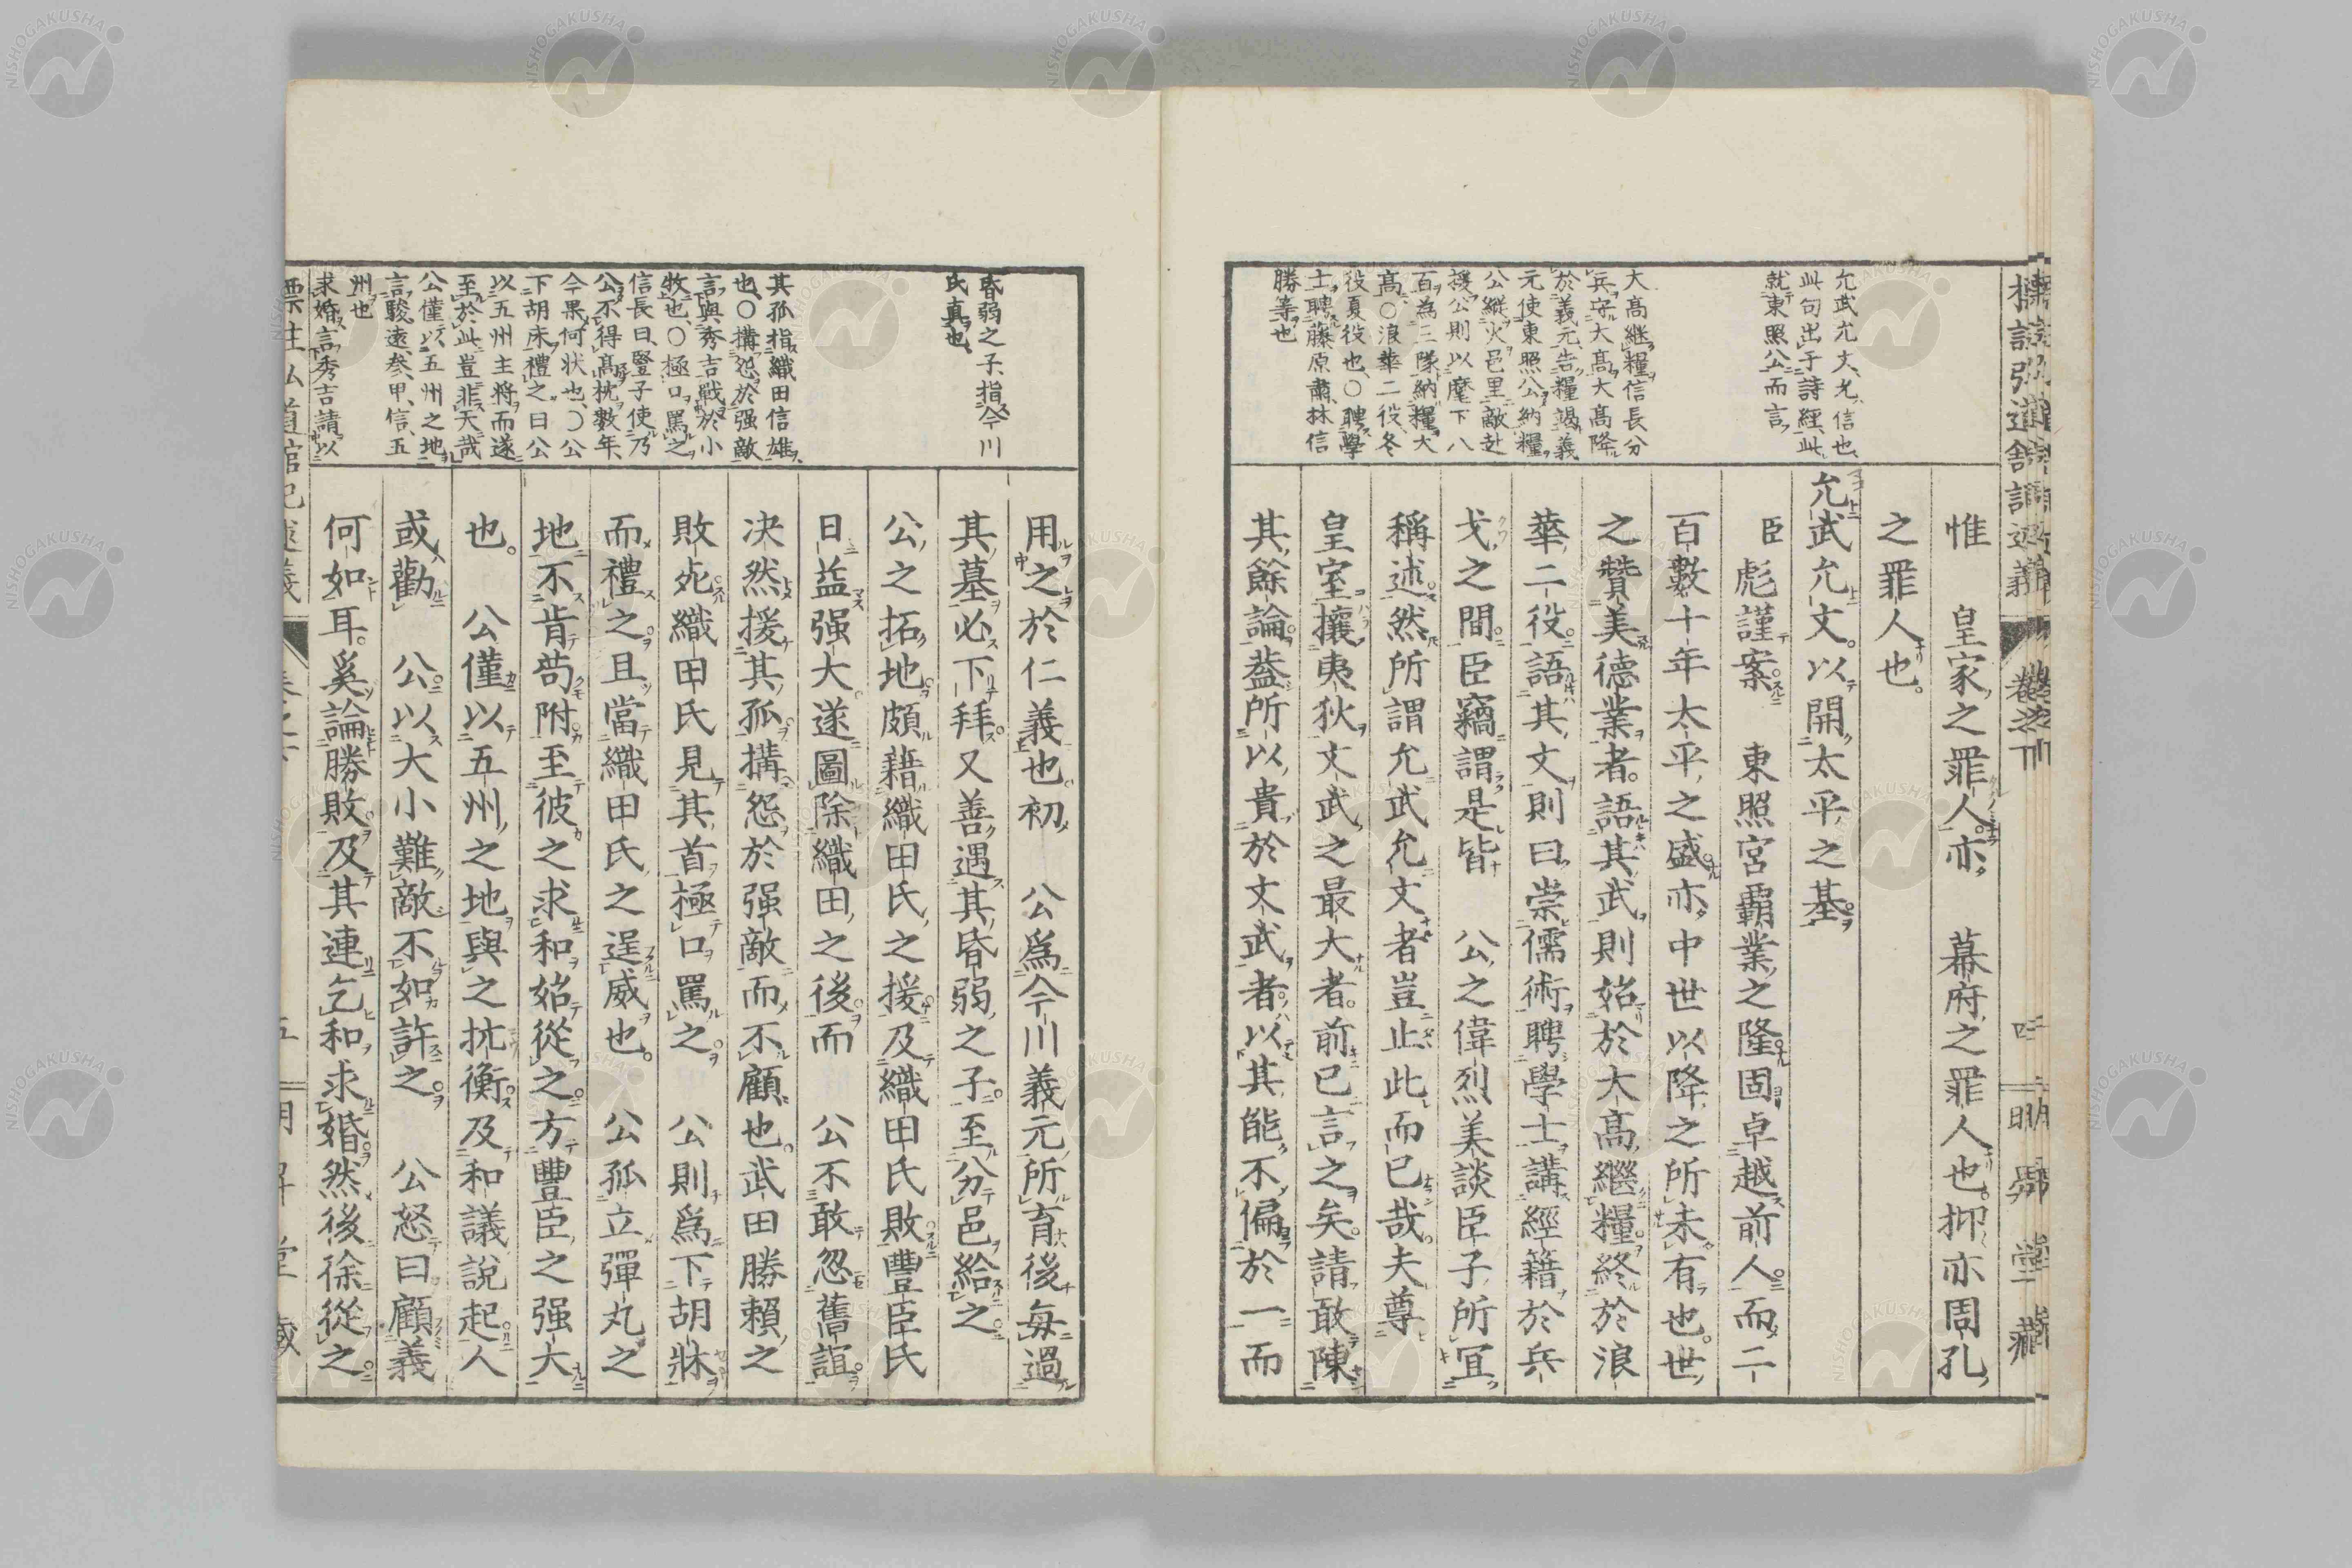 惟　皇家之罪人亦　幕府之罪人也。抑亦周孔
之罪人也。
允武允文。以開太平之基。
臣彪謹案　東照宮覇業之隆固卓越前人而二
百數十年太平之盛亦中世以降之所未有也。世
之贊美德業者。語其武則始於大高繼糧終於浪
華二役語其文則曰崇儒術聘學士講經籍於兵
戈之間臣竊謂是皆　公之偉烈美談臣子所宜
稱述然所謂允武允文者豈止此而已哉。夫尊
皇室攘夷狄文武之最大者。前已言之矣。請敢陳
其餘論蓋所以貴於文武者以其能不偏於一而
允武允文、允、信也、
此句出于詩經、此
就東照公而言、
大高繼糧信長分
兵守大高大高降
於義元告糧竭義
元使東照公納糧
公縱火邑里敵赴
援公則以麾下八
百為三隊納糧大
高○浪華二役、冬
役夏役也、○聘學
士聘藤原肅林信
勝等也
用之於仁義也。初　公爲今川義元所育後每過
其墓必下拜又善遇其昏弱之子至分邑給之
公之拓地頗藉織田氏之援及織田氏敗豐臣氏
日益强大遂圖除織田之後而　公不敢忽舊誼
决然援其孤搆怨於强敵而不顧也。武田勝賴之
敗死織田氏見其首極口罵之　公則爲下胡牀
而禮之且當織田氏之逞威也。　公孤立彈丸之
地不肯苟附至彼之求和始從之方豐臣之强大
也。　公僅以五州之地與之抗衡及和議說起人
或勸　公以大小難敵不如許之　公怒曰顧義
何如耳。奚論勝敗及其連乞和求婚然後徐從之
昏弱之子、指今川
氏真也、
其孤指織田信雄
也、○搆怨於强敵
言與秀吉戰於小
牧也、○極口罵之
信長曰、豎子使乃
公不得高枕數年、
今果何状也、○公
下胡床禮之曰公
以五州主將而遂
至於此豈非天哉
公僅以五州之地
言駿遠參甲、信、五
州也
求婚言秀吉請以